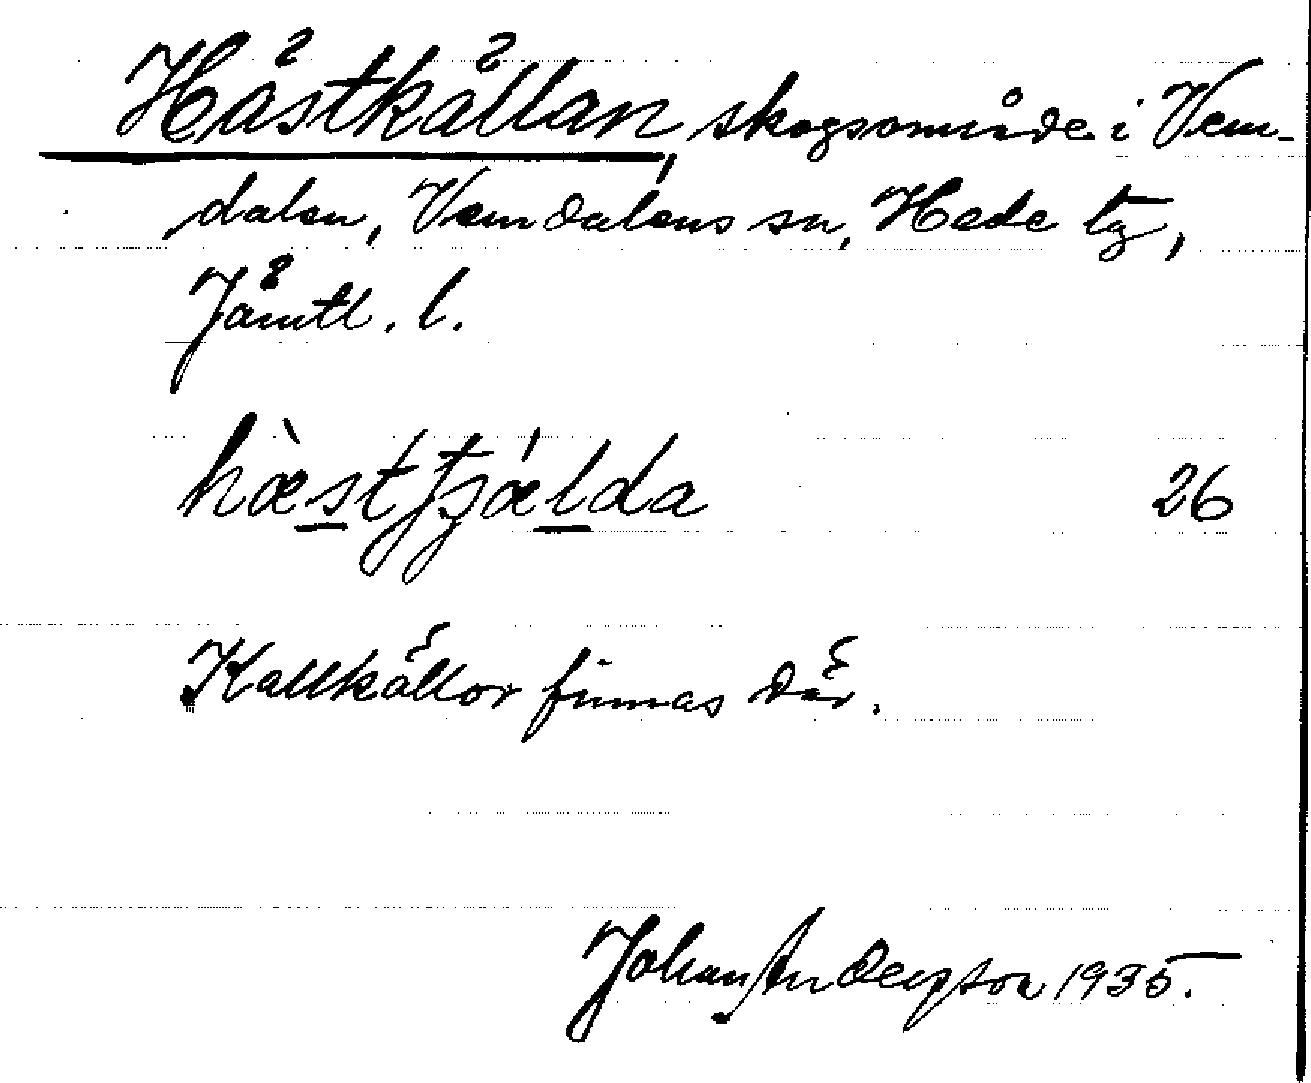 Hästkällan, skogsområde i Vem-
dalen, Vemdalens sn, Hede tg,
Jämtl. l.
hæ̀stʃʃǽlda 26
Kallkällor finnas där.
Johan Anderson 1935.